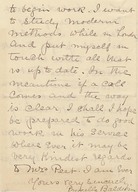 to begin work. I want
to study modern
methods while in London
and put myself in
touch with all that
is up to date. In the
meantime if a call
comes and the way
is clear I shall I hope
be prepared to do good
work in his service
where ever it may be
Very kindest regards
to Mrs Best. I am
Yours very sincerely